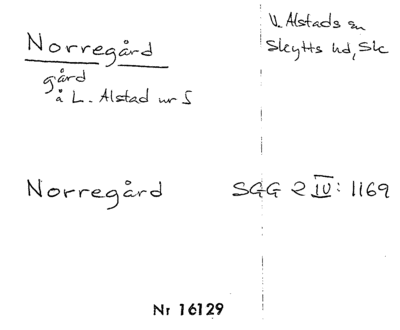 Norregård
V. Alstads sn
Skytts hd, Sk
gård
å L. Alstad nr 5
Norregård SGG 2 IV: 1169
Nr 16129